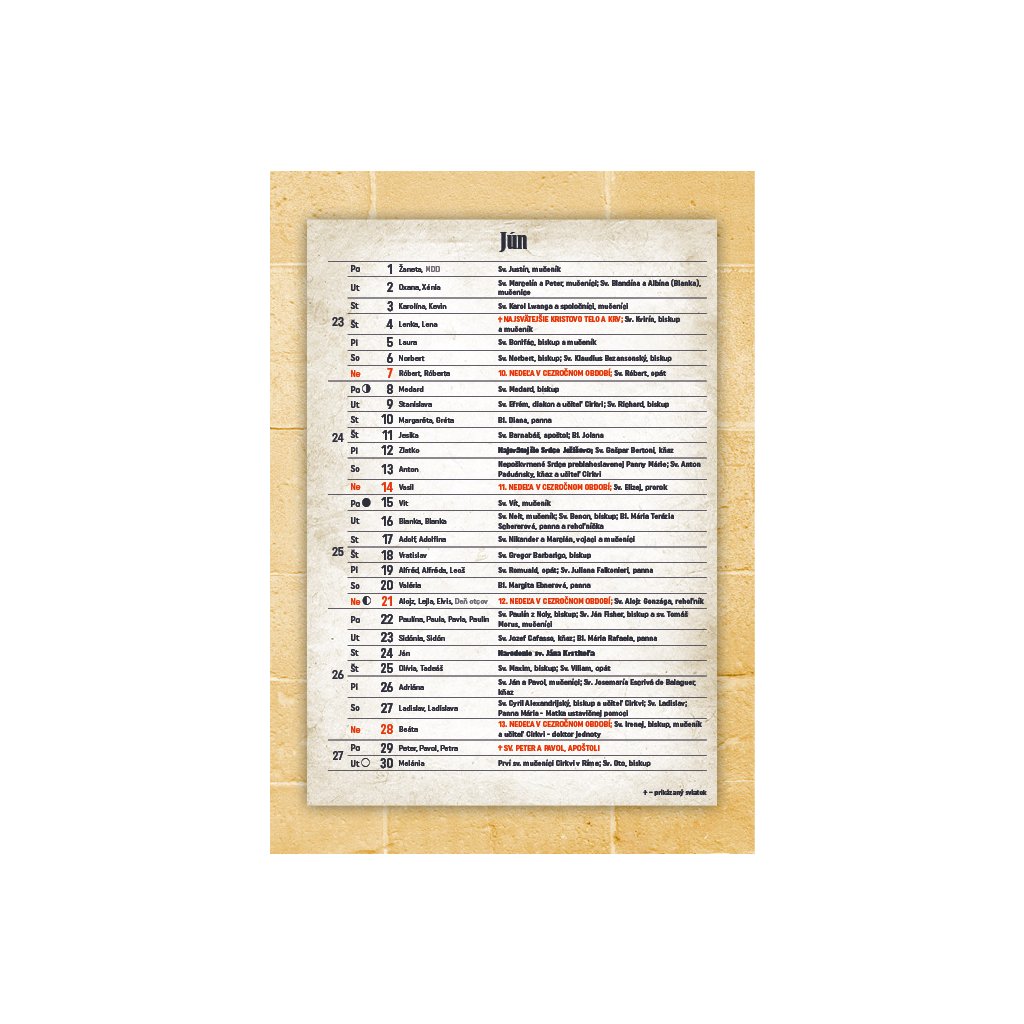 Jún
Po 1 Žaneta, MDD Sv. Justín, mučeník
Ut 2 Oxana, Xénia Sv. Marcelín a Peter, mučeníci; Sv. Blandína a Albína (Blanka),
mučenice
St 3 Karolína, Kevin Sv. Karol Lwanga a spoločníci, mučeníci
23 Št 4 Lenka, Lena † NAJSVÄTEJŠIE KRISTOVO TELO A KRV; Sv. Kvirín, biskup
a mučeník
Pi 5 Laura Sv. Bonifác, biskup a mučeník
So 6 Norbert Sv. Norbert, biskup; Sv. Klaudius Bezansonský, biskup
Ne 7 Róbert, Róberta 10. NEDEĽA V CEZROČNOM OBDOBÍ; Sv. Róbert, opát
Po 8 Medard Sv. Medard, biskup
Ut 9 Stanislava Sv. Efrém, diakon a učiteľ Cirkvi; Sv. Richard, biskup
St 10 Margaréta, Gréta Bl. Diana, panna
24 Št 11 Jesika Sv. Barnabáš, apoštol; Bl. Jolana
Pi 12 Zlatko Najsvätejšie Srdce Ježišovo; Sv. Gašpar Bertoni, kňaz
So 13 Anton Nepoškvrnené Srdce preblahoslavenej Panny Márie; Sv. Anton
Paduánsky, kňaz a učiteľ Cirkvi
Ne 14 Vasil 11. NEDEĽA V CEZROČNOM OBDOBÍ; Sv. Elizej, prorok
Po 15 Vít Sv. Vít, mučeník
Ut 16 Blanka, Bianka Sv. Neit, mučeník; Sv. Benon, biskup; Bl. Mária Terézia
Schererová, panna a rehoľníčka
St 17 Adolf, Adolfína Sv. Nikander a Marcián, vojaci a mučeníci
25 Št 18 Vratislav Sv. Gregor Barbarigo, biskup
Pi 19 Alfréd, Alfréda, Leoš Sv. Romuald, opát; Sv. Juliana Falkonieri, panna
So 20 Valéria Bl. Margita Ebnerová, panna
Ne 21 Alojz, Lejla, Elvis, Deň otcov 12. NEDEĽA V CEZROČNOM OBDOBÍ; Sv. Alojz Gonzága, rehoľník
Po 22 Paulína, Paula, Pavla, Paulín Sv. Paulín z Noly, biskup; Sv. Ján Fisher, biskup a sv. Tomáš
Morus, mučeníci
Ut 23 Sidónia, Sidón Sv. Jozef Cafasso, kňaz; Bl. Mária Rafaela, panna
St 24 Ján Narodenie sv. Jána Krstiteľa
26 Št 25 Olívia, Tadeáš Sv. Maxim, biskup; Sv. Viliam, opát
Pi 26 Adriána Sv. Ján a Pavol, mučeníci; Sv. Josemaría Escrivá de Balaguer,
kňaz
So 27 Ladislav, Ladislava Sv. Cyril Alexandrijský, biskup a učiteľ Cirkvi; Sv. Ladislav;
Panna Mária - Matka ustavičnej pomoci
Ne 28 Beáta 13. NEDEĽA V CEZROČNOM OBDOBÍ; Sv. Irenej, biskup, mučeník
a učiteľ Cirkvi - doktor jednoty
27 Po 29 Peter, Pavol, Petra † SV. PETER A PAVOL, APOŠTOLI
Ut 30 Melánia Prví sv. mučeníci Cirkvi v Ríme; Sv. Oto, biskup
† – prikázaný sviatok